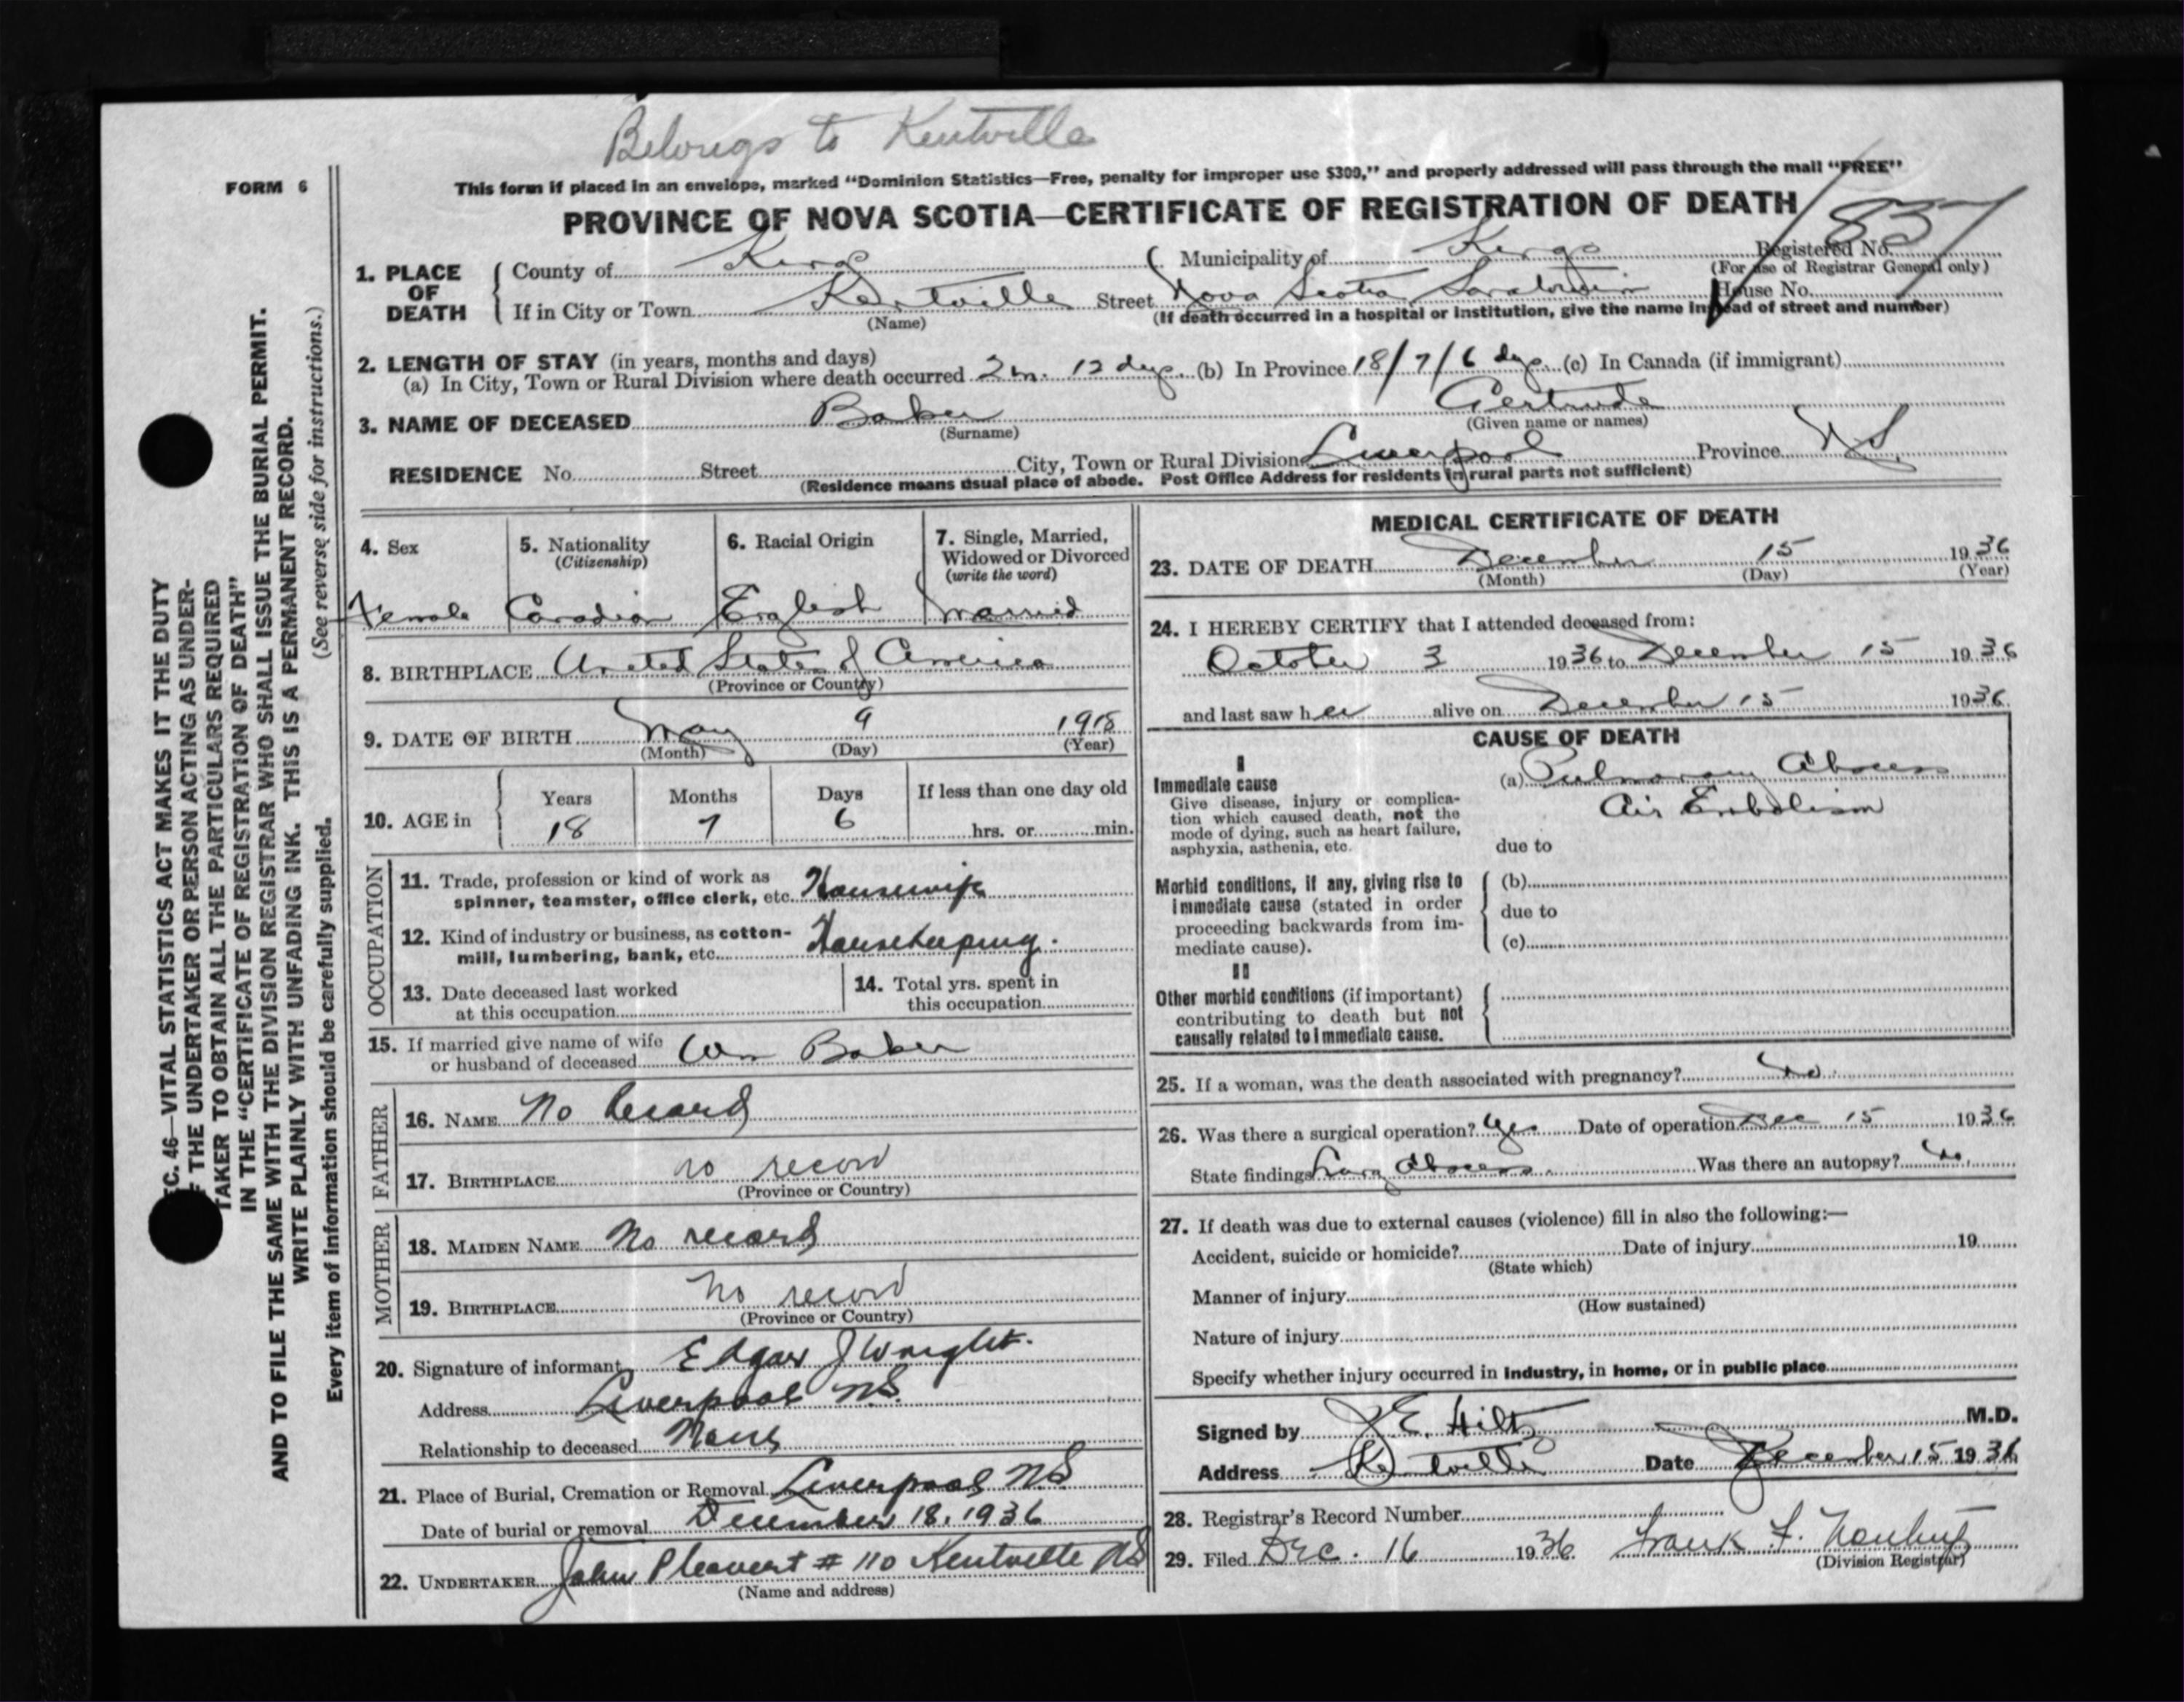 Belongs to Kentville
FORM 6
This form if placed in an envelope, marked “Dominion Statistics—Free, penalty for improper use $300,” and properly addressed will pass through the mail “FREE”
PROVINCE OF NOVA SCOTIA—CERTIFICATE OF REGISTRATION OF DEATH
837
1. PLACE OF DEATH
County of Kings Municipality of Kings Registered No.
(For use of Registrar General only)
If in City or Town Kentville Street Nova Scotia Sanatorium House No.
(Name) (If death occurred in a hospital or institution, give the name instead of street and number)
2. LENGTH OF STAY (in years, months and days)
(a) In City, Town or Rural Division where death occurred 2 m. 12 dys. (b) In Province 18/7/6 dys. (c) In Canada (if immigrant)
3. NAME OF DECEASED Baker Gertrude
(Surname) (Given name or names)
RESIDENCE No. Street City, Town or Rural Division Liverpool Province N S
(Residence means usual place of abode. Post Office Address for residents in rural parts not sufficient)
4. Sex
Female
5. Nationality
(Citizenship)
Canadian
6. Racial Origin
English
7. Single, Married,
Widowed or Divorced
(write the word)
Married
8. BIRTHPLACE United States of America
(Province or Country)
9. DATE OF BIRTH May 9 1918
(Month) (Day) (Year)
10. AGE in
Years Months Days If less than one day old
18 7 6 hrs. or min.
OCCUPATION
11. Trade, profession or kind of work as
spinner, teamster, office clerk, etc. Housewife
12. Kind of industry or business, as cotton-
mill, lumbering, bank, etc. Housekeeping.
13. Date deceased last worked
at this occupation
14. Total yrs. spent in
this occupation
15. If married give name of wife
or husband of deceased Wm Baker
FATHER
16. NAME No Record
17. BIRTHPLACE no record
(Province or Country)
MOTHER
18. MAIDEN NAME No record
19. BIRTHPLACE No record
(Province or Country)
20. Signature of informant Edgar J Wright.
Address Liverpool N.S.
Relationship to deceased None
21. Place of Burial, Cremation or Removal Liverpool N.S
Date of burial or removal December 18. 1936
22. UNDERTAKER John # 110 Kentville NS
(Name and address)
MEDICAL CERTIFICATE OF DEATH
23. DATE OF DEATH December 15 1936
(Month) (Day) (Year)
24. I HEREBY CERTIFY that I attended deceased from:
October 3 1936 to December 15 1936
and last saw her alive on December 15 1936
CAUSE OF DEATH
I
Immediate cause
Give disease, injury or complica-
tion which caused death, not the
mode of dying, such as heart failure,
asphyxia, asthenia, etc.
(a) Pulmonary Abscess
Air Embolism
due to
Morbid conditions, if any, giving rise to
immediate cause (stated in order
proceeding backwards from im-
mediate cause).
(b)
due to
(c)
II
Other morbid conditions (if important)
contributing to death but not
causally related to immediate cause.
25. If a woman, was the death associated with pregnancy? No.
26. Was there a surgical operation? Yes Date of operation Dec 15 1936
State findings Lung Abscess. Was there an autopsy? No.
27. If death was due to external causes (violence) fill in also the following:—
Accident, suicide or homicide? Date of injury 19
(State which)
Manner of injury
(How sustained)
Nature of injury
Specify whether injury occurred in industry, in home, or in public place
Signed by J.E. Hiltz M.D.
Address Kentville Date December 15 1936
28. Registrar's Record Number
29. Filed Dec. 16 1936 Frank F.
(Division Registrar)
SEC. 46—VITAL STATISTICS ACT MAKES IT THE DUTY
OF THE UNDERTAKER OR PERSON ACTING AS UNDER-
TAKER TO OBTAIN ALL THE PARTICULARS REQUIRED
IN THE “CERTIFICATE OF REGISTRATION OF DEATH”
AND TO FILE THE SAME WITH THE DIVISION REGISTRAR WHO SHALL ISSUE THE BURIAL PERMIT.
WRITE PLAINLY WITH UNFADING INK. THIS IS A PERMANENT RECORD.
(See reverse side for instructions.)
Every item of information should be carefully supplied.